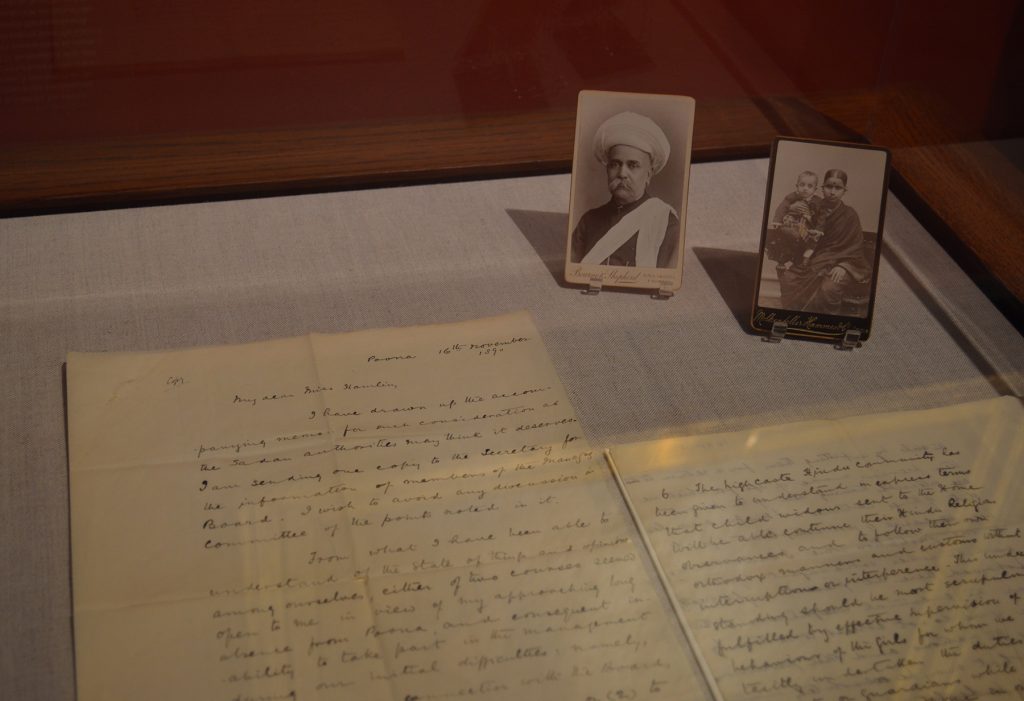 Bourne & Shepherd
Copy.
Poona 16th November
189
My dear Miss Hamlin,
I have drawn up the accom
panying memo: for such consideration as
the Sadan authorities may think it deserves.
I am sending one copy to the Secretary for
the information of members of the Manag'g
Board. I wish to avoid any discussion in
Committee of the points noted in it.
From what I have been able to
understand of the state of things and opinions
among ourselves, either of two courses seems
open to me in view of my approaching long
absence from Poona, and consequent in
ability to take part in the management
our initial difficulties; namely,
connection with
(2) to
6. The high caste Hindu community has
been given to understand in express terms
that child widows sent to the Home
will be able continue their Hindu Religious
observances, and to follow their own
orthodox manners and customs without
interruptions or interference. This under
standing should be most scrupulously
fulfilled by effective supervision of
behaviour of the girls for whom we
the duties
guardians while